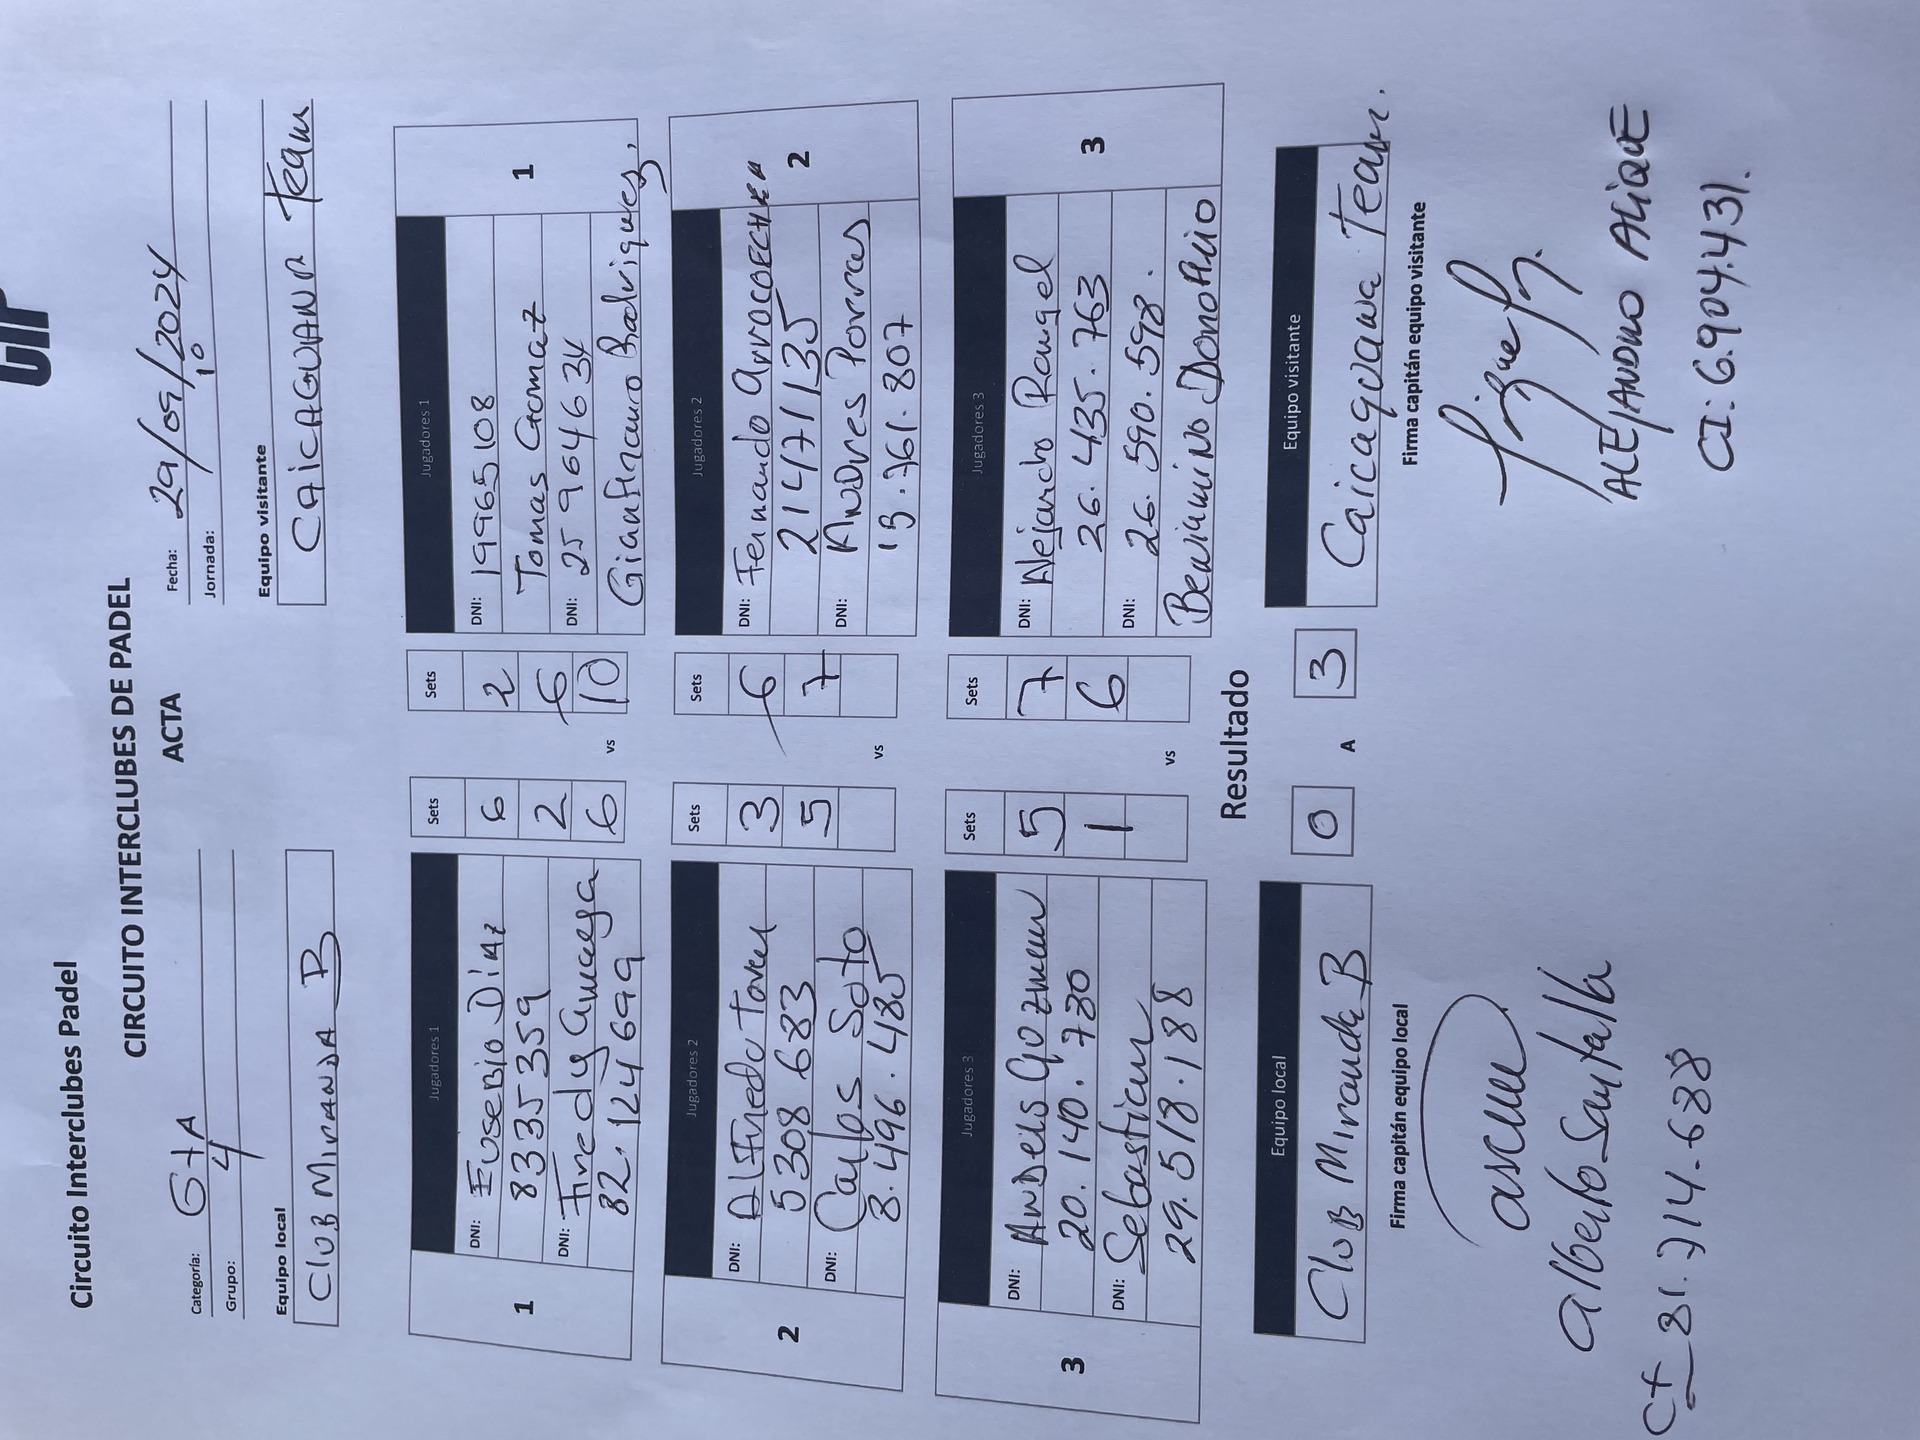 CIP
Circuito Interclubes Padel
CIRCUITO INTERCLUBES DE PADEL
ACTA
Categoría: 6tA
Grupo: 4
Fecha: 29/09/2024
10
Jornada:
Equipo local
CluB MirANDA B
Equipo visitante
CAiCAGUANA Team
1
Jugadores 1
DNI: EuseBio DiAz
8335359
DNI: Fredy
82.124699
Sets
6
2
6
vs
Sets
2
6
10
Jugadores 1
DNI: 19965108
Tomas Gomaz
DNI: 25964634
Gianfranco Rodriguez,
1
2
Jugadores 2
DNI: AlFredo Tovar
5308683
DNI: Carlos Soto
8.496.485
Sets
3
5
vs
Sets
6
7
Jugadores 2
DNI: Fernando ArrocoECHEA
21471135
DNI: ANDres Porras
13.761.807
2
3
Jugadores 3
DNI:
20.140.780
DNI: Sebastian
29.518.188
Sets
5
1
vs
Sets
7
6
Jugadores 3
DNI: Alejandro Rangel
26.435.763
DNI: 26.590.598.
BeniaminO DonoFrio
3
Resultado
Equipo local
CluB Miranda B
0 A 3
Equipo visitante
Caicaguana Team.
Firma capitán equipo local
Firma capitán equipo visitante
Alberto Santalla
CI 81.714.688
ALEJANDRO ALiQUE
CI: 6.904.431.